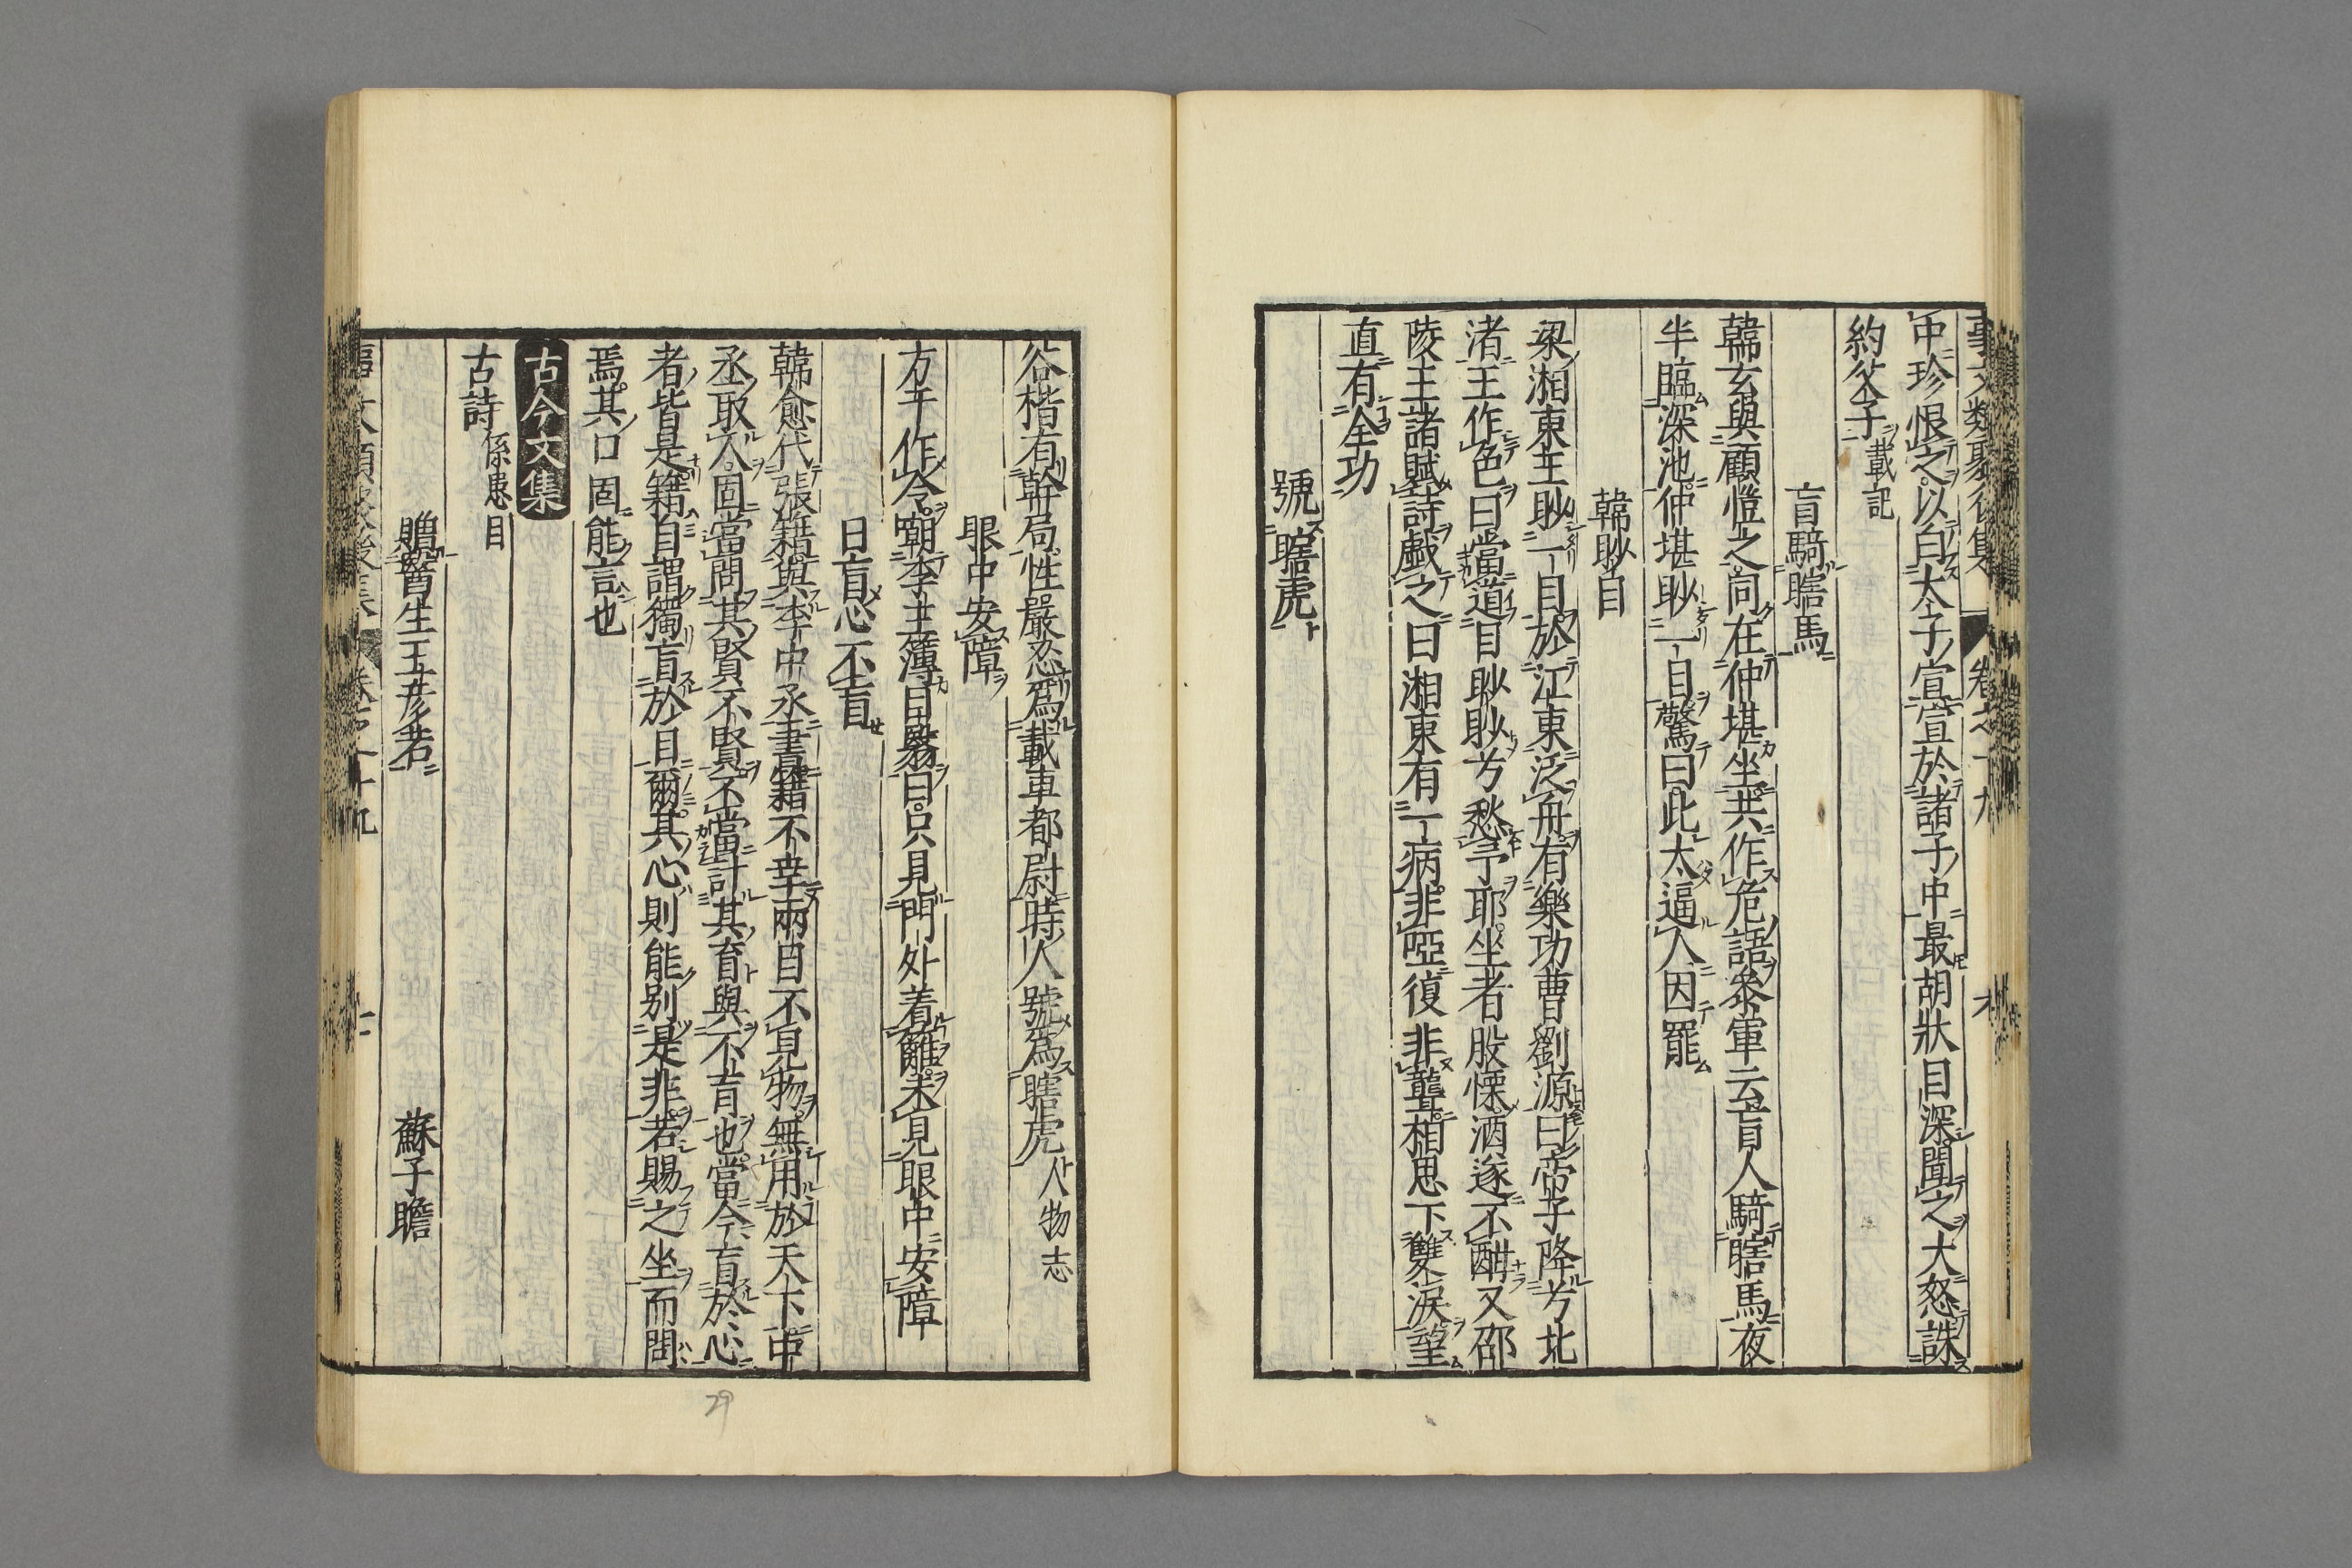 事文類聚後集 卷之十九
中珍恨之以白太子宣宣於諸子中最胡狀目深聞之大怒誅
約父子載記
盲騎瞎馬
韓玄與顧愷之同在仲堪坐共作危語參軍云盲人騎瞎馬夜
半臨深池仲堪眇一目驚曰此太逼人因罷
韓眇目
梁湘東王眇一目於江東泛舟有樂功曹劉源曰帝子降兮北
渚王作色曰當道目眇眇兮愁予耶坐者股慄酒遂不酣又邵
陵王諸賦詩戲之曰湘東有一病非啞復非聾相思下雙淚望
直有全功
號瞎虎
谷楷有幹局性嚴忍爲載車都尉時人號爲瞎虎人物志
眼中安障
方干作令嘲李主簿目翳曰只見門外着籬未見眼中安障
日盲心不盲
韓愈代張籍與李中丞書籍不幸兩目不見物無用於天下中
丞取人固當問其賢不賢不當計其盲與不盲也當今盲於心
者皆是籍自謂獨盲於目爾其心則能别是非若賜之坐而問
焉其口固能言也
古今文集
古詩係患目
贈醫生王彥若 蘇子瞻
事文類聚後集 卷之十九